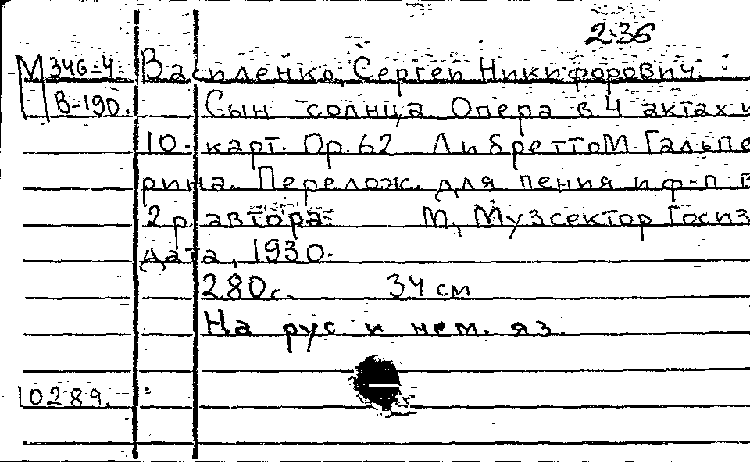 2-36
М 346-4 Василенко, Сергей Никифорович.
В-190. Сын солнца. Опера в 4 актах и
10- карт. Ор. 62 Либретто М. Гальпе
рина. Перелож. для пения и ф-п в
2 р. автора. М, Музсектор Госиз
дата, 1930.
280 с. 34 см
На рус и нем. яз.
10289.